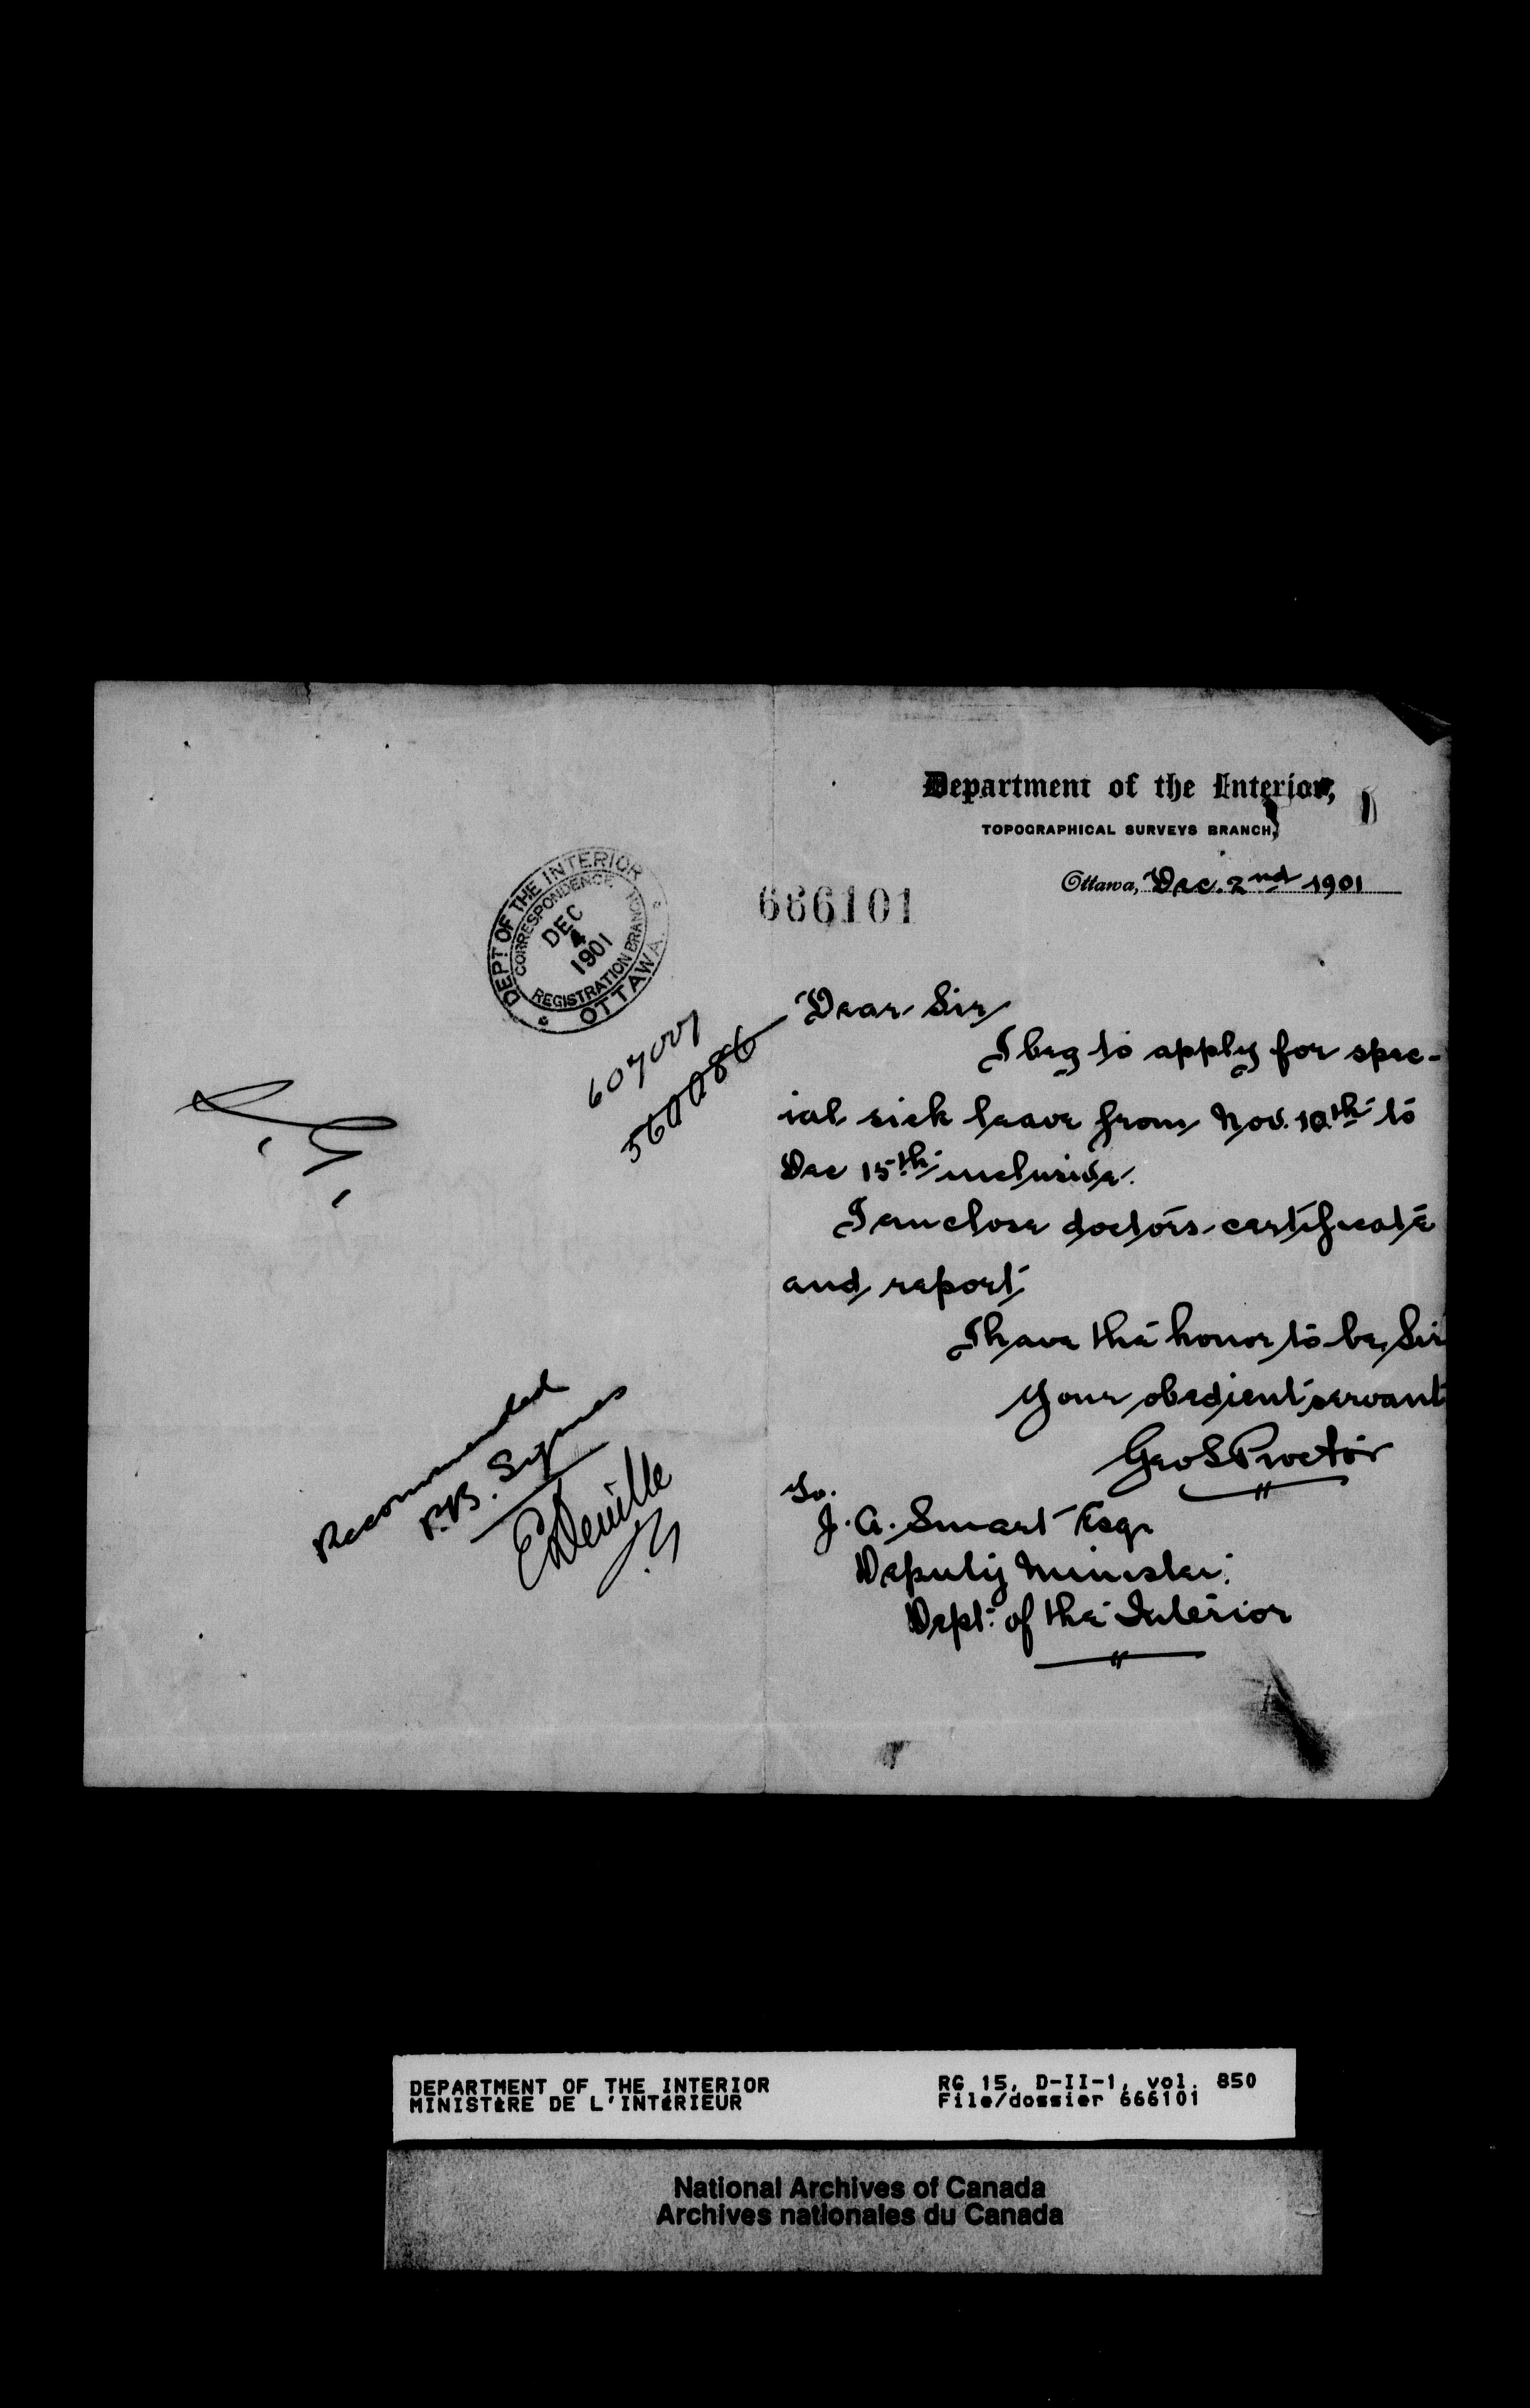 Department of the Interior,
TOPOGRAPHICAL SURVEYS BRANCH,
Ottawa, Dec. 2nd 1901
666101
DEPT OF THE INTERIOR
CORRESPONDENCE
DEC
4
1901
REGISTRATION BRANCH
OTTAWA.
607007
560086
Dear Sir
I beg to apply for spec-
ial sick leave from Nov. 10th to
Dec 15th inclusive.
I enclose doctors certificate
and report
I have the honor to be, Sir
Your obedient servant
Geo S Proctor
To.
J. A. Smart Esqr
Deputy Minister.
Dept. of the Interior
Recommended
P.B. Symes
E Deville
DEPARTMENT OF THE INTERIOR
MINISTÈRE DE L'INTÉRIEUR
RG 15, D-II-1, vol. 850
File/dossier 666101
National Archives of Canada
Archives nationales du Canada